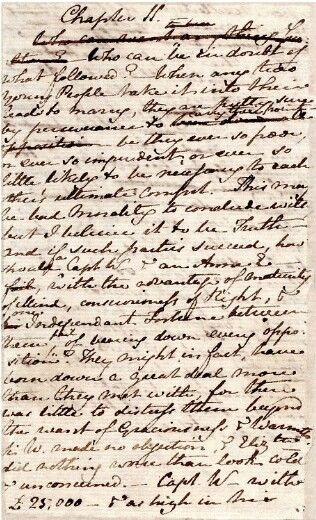 Chapter 11.
Who can be in doubt of
what followed? When any two
Young People take it into their
heads to marry, they are pretty sure
by perseverance to
be they ever so poor,
or ever so imprudent, or ever so
little likely to be necessary to each
other's ultimate comfort. This may
be bad Morality to conclude with
but I believe it to be Truth—
and if such parties succeed, how
should a Capt W— & an Anne E—
with the advantage of Maturity
of Mind, consciousness of Right, &
one Independant Fortune between
them of bearing down every oppo
sition? They might in fact, have
born down a great deal more
than they met with, for there
was little to distress them beyond
the want of Graciousness & Warmth
W. made no objection, & Eliz:th
did nothing worse than look cold
& unconcerned.— Capt W— with
£25,000— & as high in his